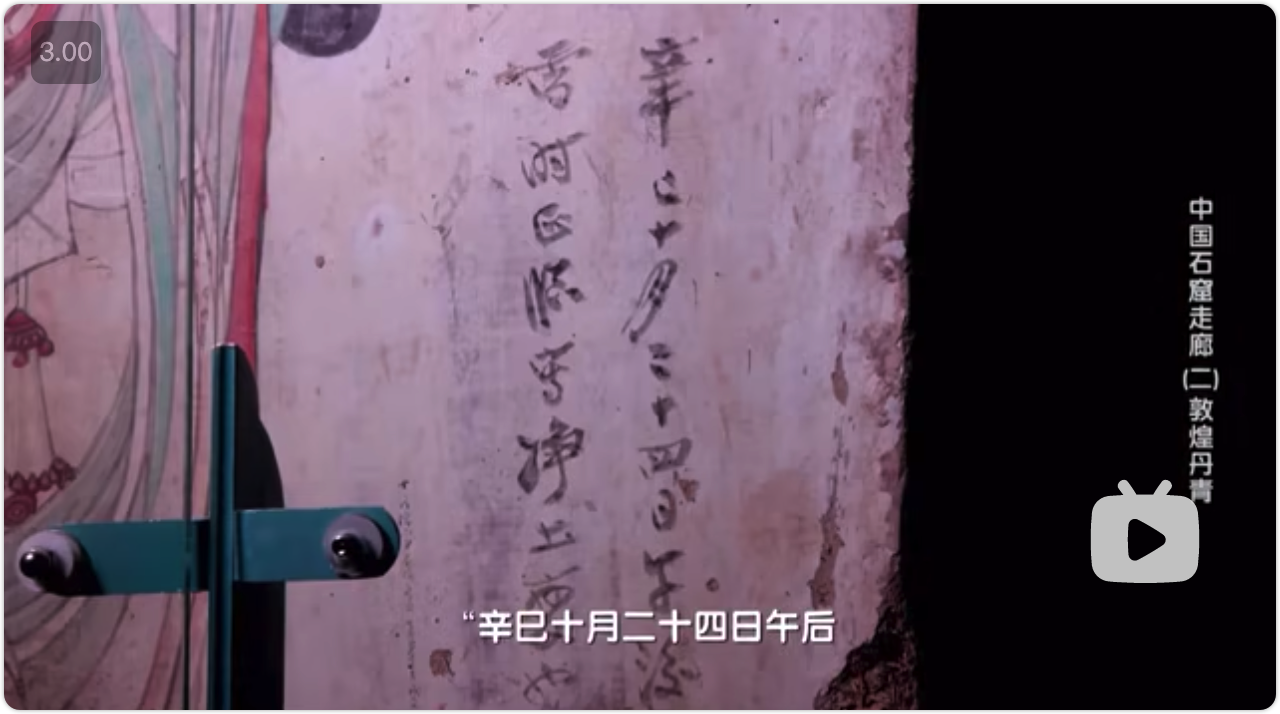 3.00
辛巳十月二十四日午後
雪时正临写净土變也
中国石窟走廊(二)敦煌丹青
“辛巳十月二十四日午后